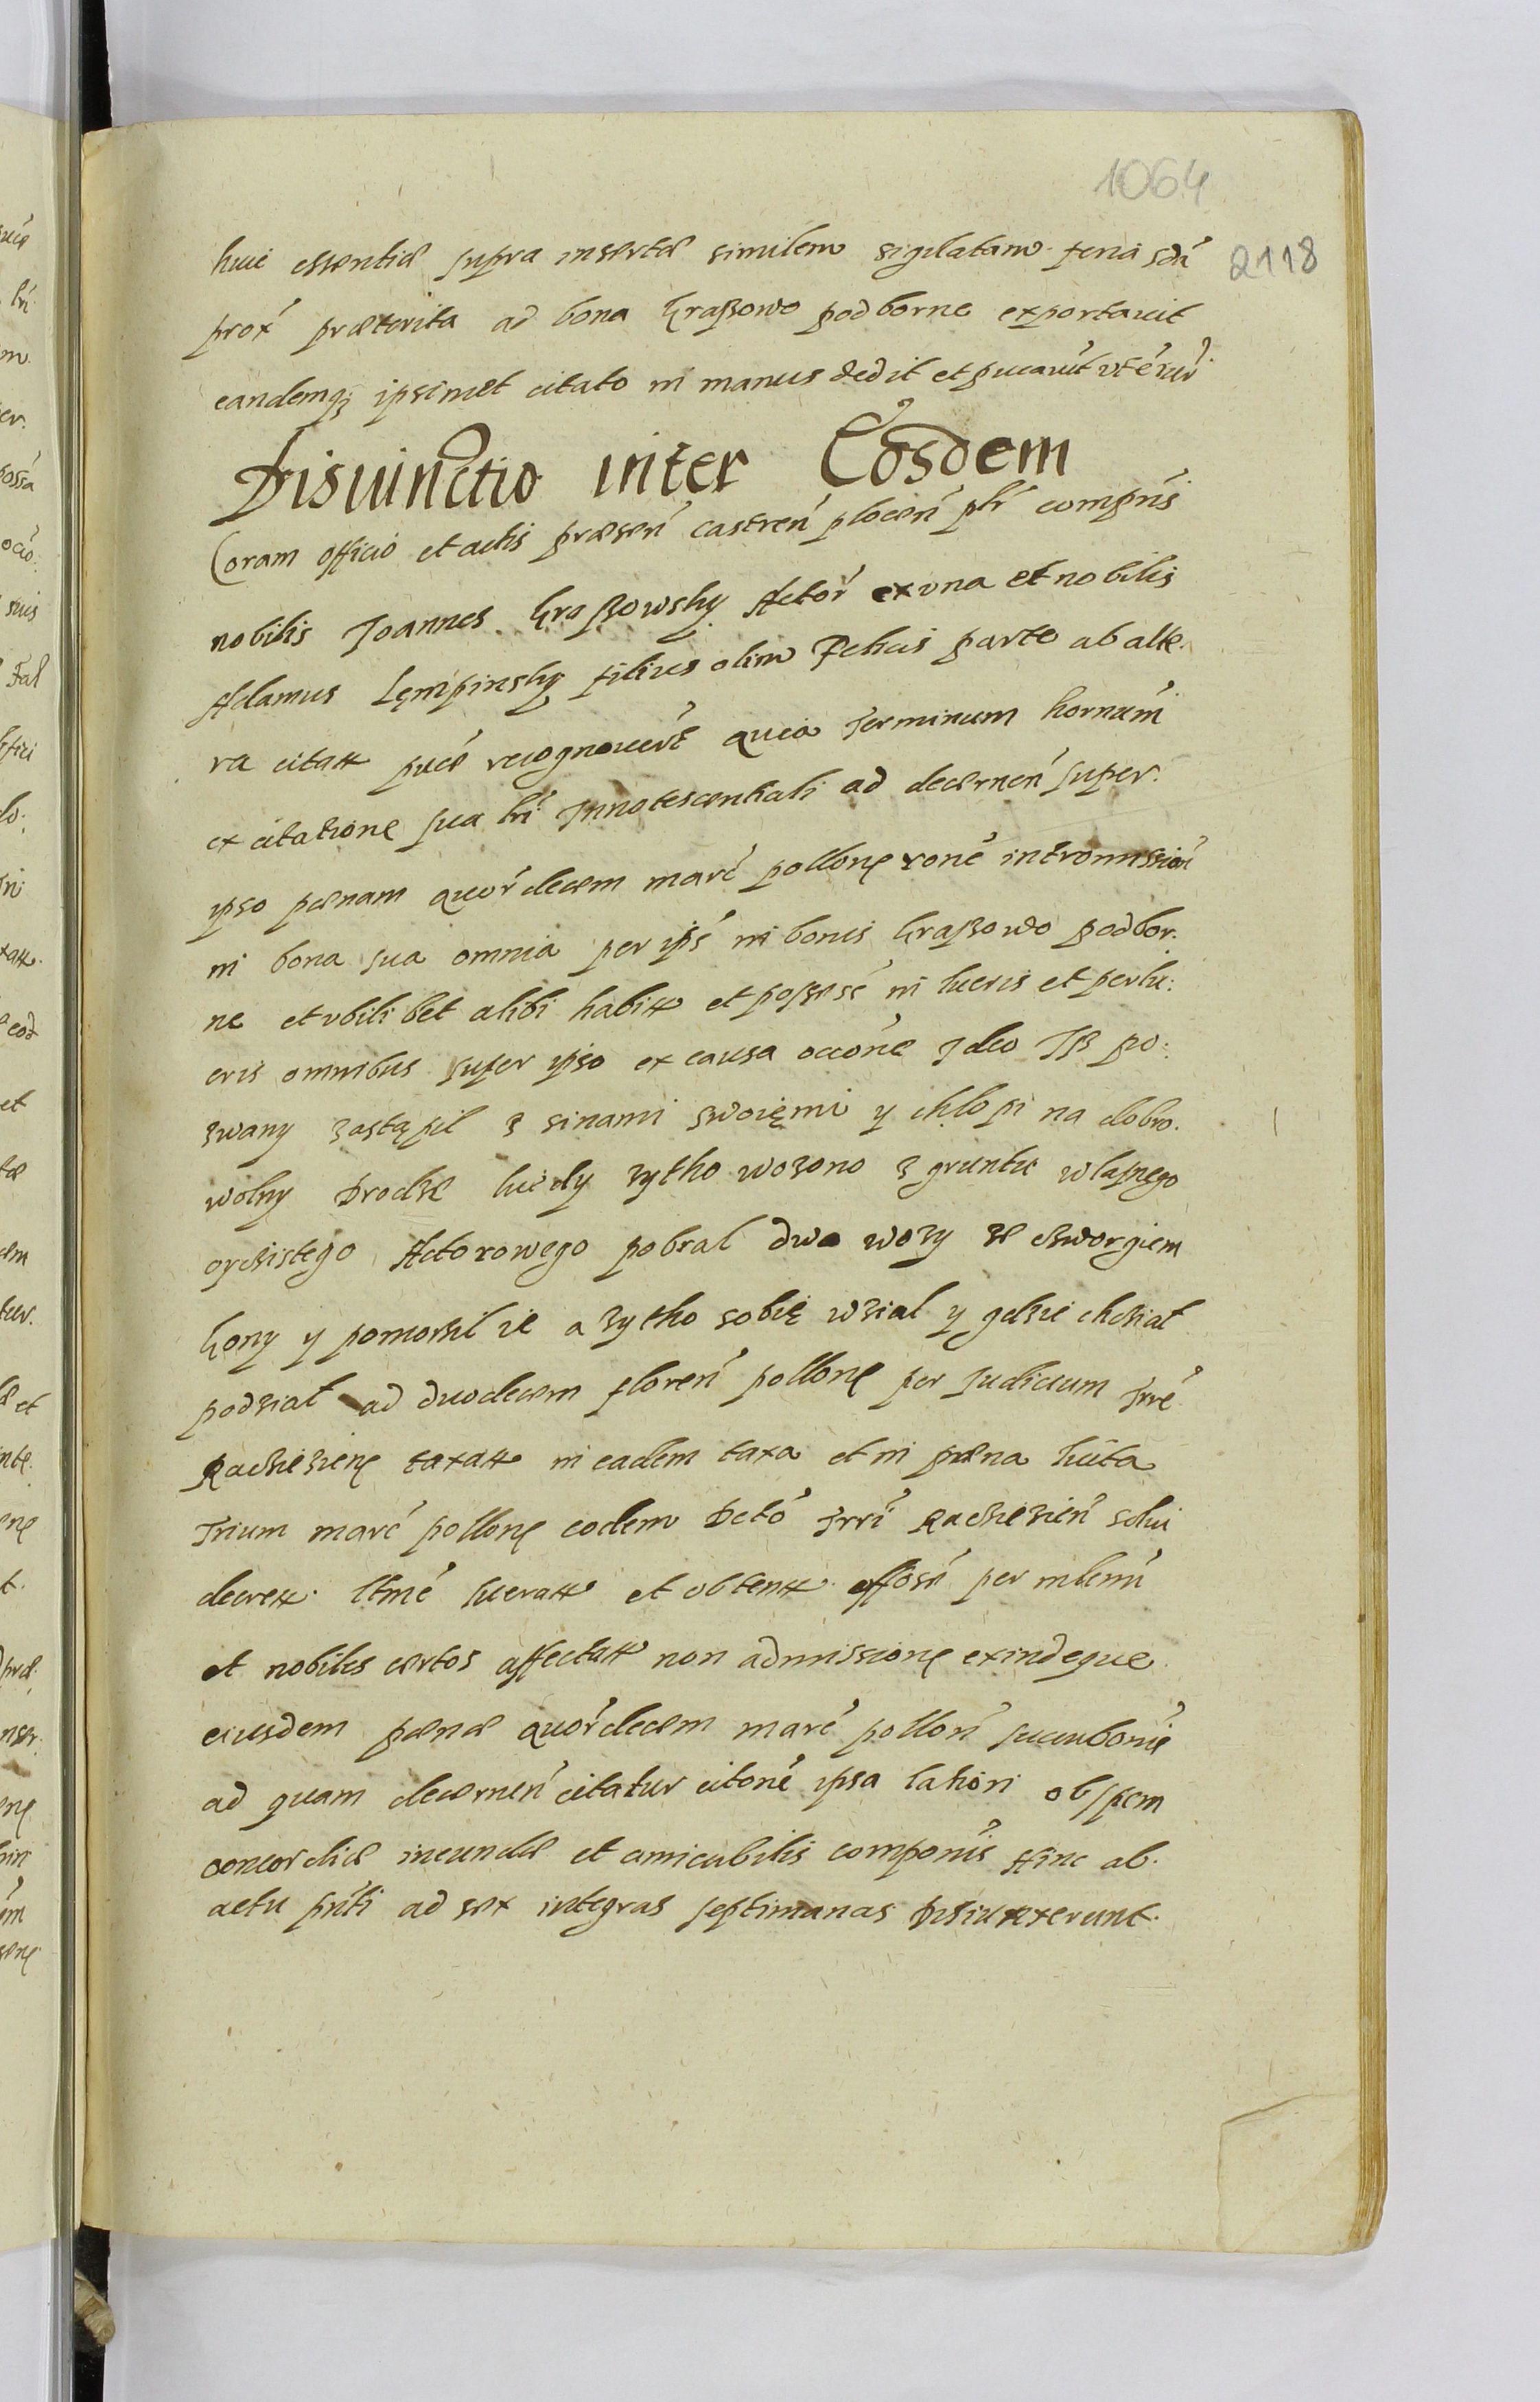 1064
2118
huic essentiæ supra insertæ similem sigilatam feria sdá
prox́ præterita ad bona Kraszowo podborne exportauit
eandemq; ipsimet citato in manus dedit et
Disiunctio inter Eosdem
Coram officio et actis præsen castren plocen plr compns
nobilis Joannes Kraszowsky Actor ex vna et nobilis
Adamus Lęmpinsky filius olim Felicis parte ab alte.
ra citatt recognouert quia Terminum hornum
ex citatione sua lri Innotescentiali ad decernen super.
ipso pænam quordecem marc pollone rone intromission
in bona sua omnia per ips in bonis Kraszowo podbor.
ne et vbilibet alibi habitt et possess in lucris et perlu:
cris omnibus super ipso ex causa occone Ideo Isz po:
zwany zastąpil z sinami swoięmi y chlopi na dobro.
wolny Drodze kiedy zytho wozono z gruntu wlasnego
oyczistego Actorowego pobral dwa wozy ze czworgiem
kony y pomorzil ie a zytho sobię wzial y gdzie chczial
podzial ad duodecem floren pollone per Judicium Trre
Raczieziene taxatt in eadem taxa et in pæna luita
Trium marc pollone eodem Dcto Trri Racziezien solui
decrett ltme lucratt et obtentt
et nobiles certos affectatt non admissione exindeque
eiusdem pænæ quordecem marc pollon succubone
ad quam decernen citatur citone ipsa latiori ob spem
concordiæ ineundæ et amicabilis componis Hinc ab.
actu pnti ad sex integras septimanas Disiunxerunt.